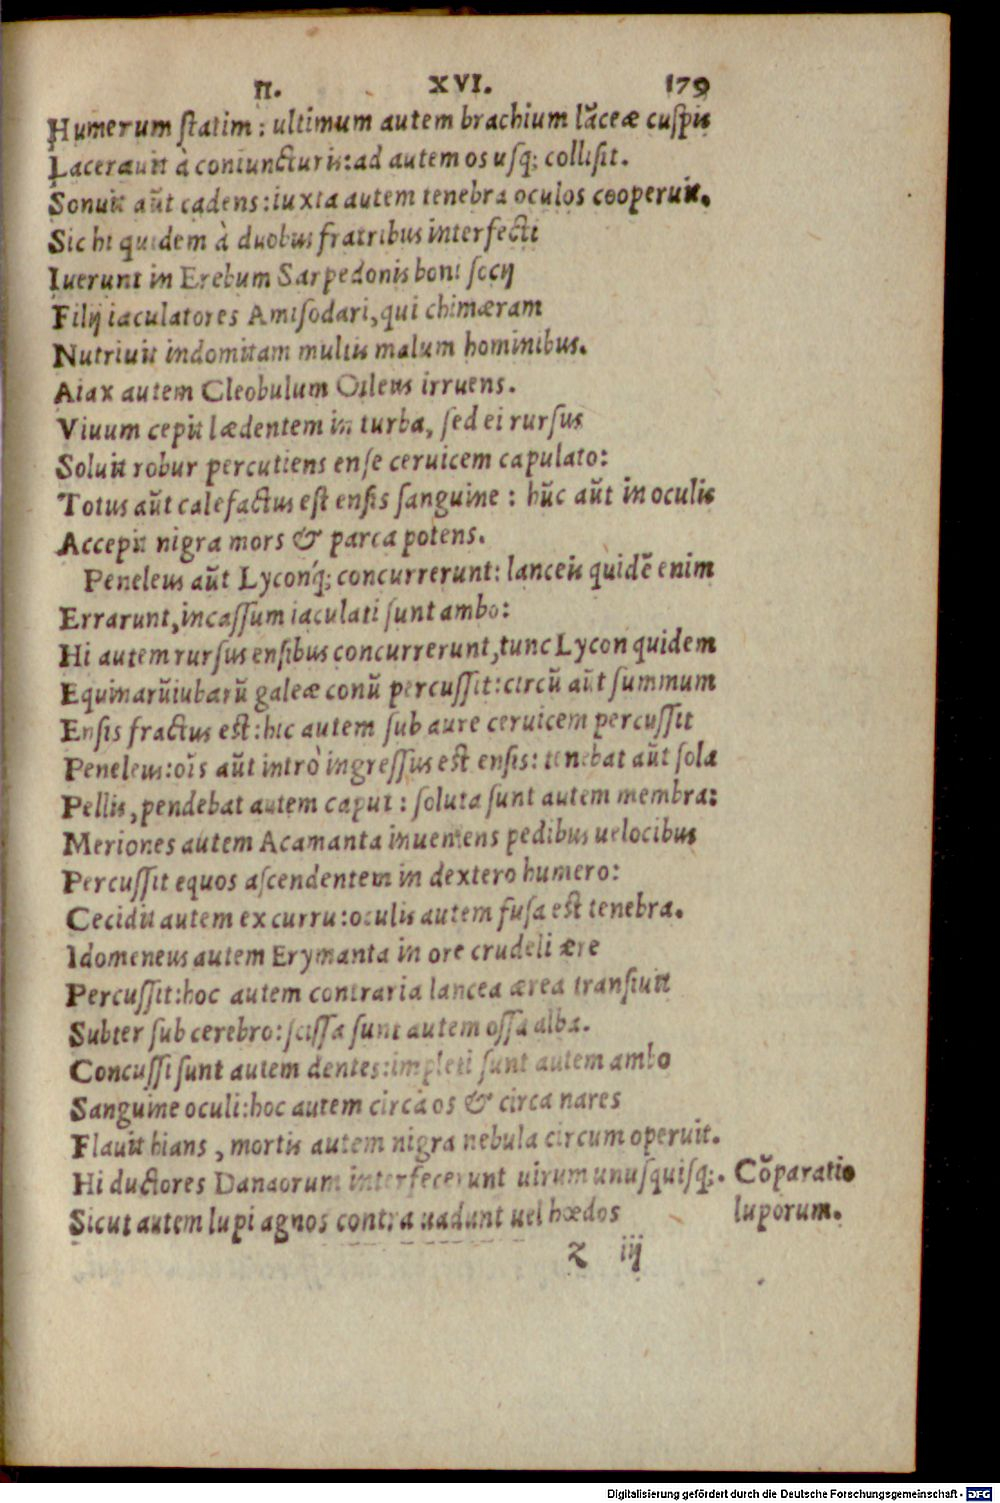 Π. XVI. 179
Humerum ſtatim : ultimum autem brachium lãceæ cuſpis
Lacerauit à coniuncturis: ad autem os uſq; colliſit.
Sonuit aũt cadens : iuxta autem tenebra oculos cooperuit.
Sic hi quidem à duobus fratribus interfecti
Iuerunt in Erebum Sarpedonis boni ſocij
Filij iaculatores Amiſodari, qui chimæram
Nutriuit indomitam multis malum hominibus.
Aiax autem Cleobulum Oileus irruens.
Viuum cepit lædentem in turba, ſed ei rurſus
Soluit robur percutiens enſe ceruicem capulato:
Totus aũt calefactus eſt enſis ſanguine : hũc aũt in oculis
Accepit nigra mors & parca potens.
Peneleus aũt Lyconq́; concurrerunt: lanceis quidẽ enim
Errarunt, incaſſum iaculati ſunt ambo:
Hi autem rurſus enſibus concurrerunt, tunc Lycon quidem
Equinarũ iubarũ galeæ conũ percuſſit: circũ aũt ſummum
Enſis fractus eſt: hic autem ſub aure ceruicem percuſſit
Peneleus: oĩs aũt intrò ingreſſus eſt enſis: tenebat aũt ſola
Pellis, pendebat autem caput : ſoluta ſunt autem membra:
Meriones autem Acamanta inueniens pedibus uelocibus
Percuſſit equos aſcendentem in dextero humero:
Cecidit autem ex curru: oculis autem fuſa eſt tenebra.
Idomeneus autem Erymanta in ore crudeli ære
Percuſſit: hoc autem contraria lancea ærea tranſiuit
Subter ſub cerebro: ſciſſa ſunt autem oſſa alba.
Concuſſi ſunt autem dentes: impleti ſunt autem ambo
Sanguine oculi: hoc autem circà os & circa nares
Flauit hians, mortis autem nigra nebula circum operuit.
Hi ductores Danaorum interfecerunt uirum unuſquiſq;.
Sicut autem lupi agnos contra uadunt uel hœdos
Cõparatio
luporum.
z iij
Digitalisierung gefördert durch die Deutsche Forschungsgemeinschaft - DFG